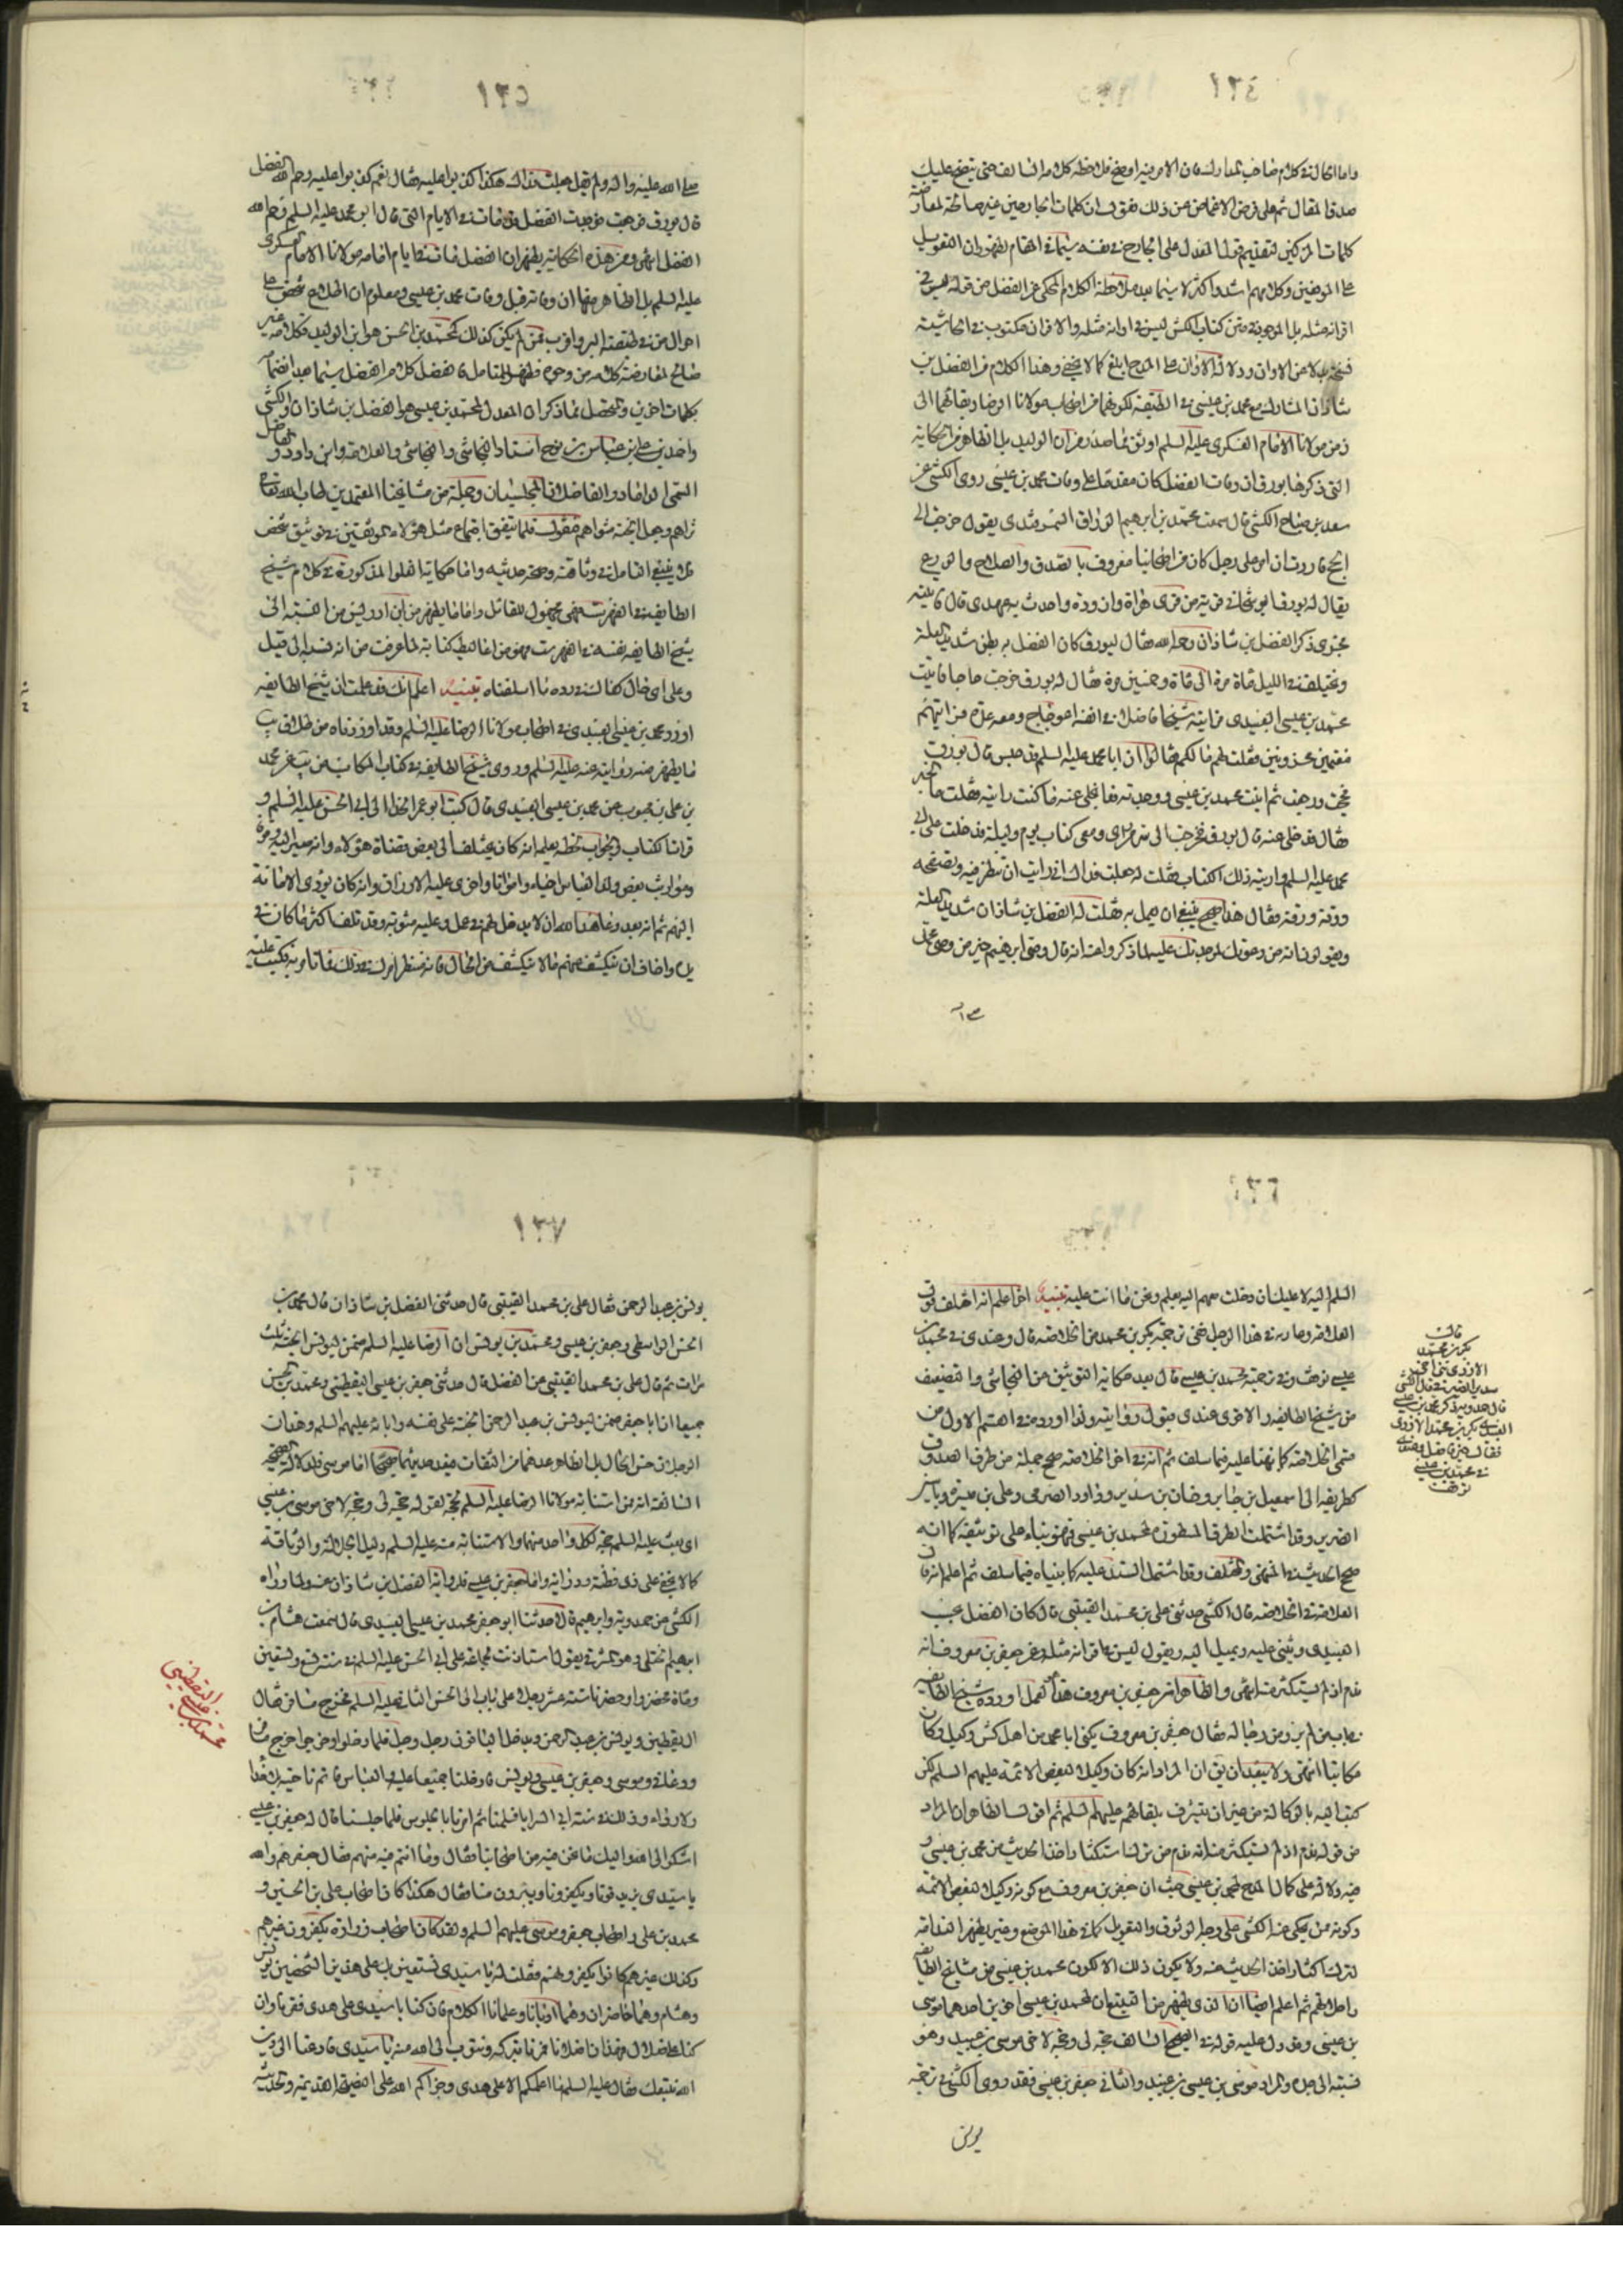 ١٣٤
واما الحال في كلام صاحب المدارك فان الامر فيه اوضح فلاحظ كلامه السالف حتى يتضح عليك
صدق المقال ثم على فرض الاغماض عن ذلك نقول ان كلمات الجارحين غير صالحة لمعارضة
كلمات المزكين لتقديم قول المعدل على الجارح في نفسه سيما في المقام لظهور ان التعويل
على الموثقين وكلامهم اشد واكثر لا سيما بعد ملاحظة الكلام المحكي عن الفضل من قوله ليس في
اقرانه مثله بل الموجود في متن كتاب الكشي ليس في اقرانه مثله والاقران مكتوب في الحاشية
نسخة بدلا عن الاوان ودلالة الاوان على المدح ابلغ كما لا يخفى وهذا الكلام من الفضل بن
شاذان المشارك مع محمد بن عيسى في الطبقة لكونهما من اصحاب مولانا الرضا وبقائهما الى
زمن مولانا الامام العسكري عليه السلم اوثق مما صدر من ابن الوليد بل الظاهر من الحكاية
التي ذكرها بورق ان وفات الفضل كان مقدما على وفات محمد بن عيسى روى الكشي عن
سعد بن جناح الكشي قال سمعت محمد بن ابرهيم الوراق السمرقندي يقول خرجت الى
الحج فاردت ان امر على رجل كان من اصحابنا معروف بالصدق والصلاح والورع
يقال له بورق البوشنجاني قرية من قرى هراة وازوره واحدث به عهدي قال فاتيته
فجرى ذكر الفضل بن شاذان رحمه الله فقال بورق كان الفضل به بطن شديد العلة
ويختلف في الليل مأة مرة الى مأة وخمسين مرة فقال له بورق خرجت حاجا فاتيت
محمد بن عيسى العبيدي فرايته شيخا فاضلا في انفه اعوجاج ومعه عدة فرايتهم
مغتمين محزونين فقلت لهم ما لكم فقالوا ان ابا محمد عليه السلم قد حبس قال بورق
فحججت ورجعت ثم اتيت محمد بن عيسى ووجدته قد انجلى عنه ما كنت رايته فقلت ما الخبر
فقال قد خلي عنه قال بورق فخرجت الى سر من راى ومعي كتاب يوم وليلة فدخلت على ابي
محمد عليه السلم واريته ذلك الكتاب فقلت له جعلت فداك اني رايت ان تنظر فيه وتصفحه
ورقة ورقة فقال هذا صحيح ينبغي ان يعمل به فقلت له الفضل بن شاذان شديد العلة
ويقولون انه من دعوتك لموجدتك عليه لما ذكروا عنه انه قال وصي ابرهيم خير من وصي محمد
١٣٥
صلى الله عليه واله ولم يقل جعلت فداك هكذا كذبوا عليه فقال نعم كذبوا عليه رحم الله الفضل
قال بورق فرجعت فوجدت الفضل قد مات في الايام التي قال ابو محمد عليه السلم رحم الله
الفضل انتهى ومن هذه الحكاية يظهر ان الفضل مات في ايام امامة مولانا الامام العسكري
عليه السلم بل الظاهر منها ان وفاته قبل وفات محمد بن عيسى ومعلوم ان اطلاع شخص على
احوال من في طبقته اكثر واقرب ممن لم يكن كذلك كمحمد بن الحسن هو ابن الوليد فكلامه غير
صالح لمعارضة كلامه من وجوه فظهر للمتامل تفضل كلام الفضل سيما بعد انضمامه
بكلمات اخرين والمتحصل مما ذكر ان المعدل لمحمد بن عيسى هو الفضل بن شاذان والكشي
واحمد بن علي بن عباس بن نوح استاد النجاشي والنجاشي والعلامة وابن داود والفاضل
التقي الداماد والفاضلان المجلسيان وجملة من مشايخنا المعتمدين طاب الله تعالى
ثراهم وجعل الجنة مثواهم فنقول قلما يتفق اجتماع مثل هؤلاء الموثقين في توثيق شخص
فلا ينبغي التامل في وثاقته وصحة حديثه واما حكاية الغلو المذكورة في كلام شيخ
الطايفة في الفهرست فهي مجهول القائل واما ما يظهر من ابن ادريس من النسبة الى
شيخ الطايفة نفسه في الفهرست فهو من اغاليط كتابه لما عرفت من انه نسبه الى قيل
وعلى اي حال كفانا في رده ما اسلفناه تنبيه اعلم انك قد علمت ان شيخ الطايفة
اورد محمد بن عيسى العبيدي في اصحاب مولانا الرضا عليه السلم وقد اوردناه من طلاق يب
ما يظهر منه روايته عنه عليه السلم وروى شيخ الطايفة في كتاب المكاسب من يب عن محمد
بن علي بن محبوب عن محمد بن عيسى العبيدي قال كتب ابو عمر الحذاء الى ابي الحسن عليه السلم و
قرانا الكتاب والجواب بخطه يعلمه انه كان يختلف الى بعض قضاة هؤلاء وانه صير اليه وقوفا
ومواريث بعض ولد العباس احياء وامواتا واجرى عليه الارزاق وانه كان يؤدي الامانة
اليهم ثم انه بعد عاهد الله ان لا يدخل لهم في عمل وعليه مؤنة وقد تلف اكثر ما كان في
يده واخاف ان ينكشف عنهم ما لا ينكشف من الحال فانه منتظر امرك في ذلك فما تامر به فكتب عليه
١٣٦
السلم اليه لا عليك ان دخلت معهم الله يعلم ونحن ما انت عليه تنبيه اخر اعلم انه اختلف قول
العلامة وما ذكره في هذا الرجل ففي ترجمة بكر بن محمد من الخلاصة قال وعندي في محمد بن
عيسى توقف وفي ترجمة محمد بن عيسى قال بعد حكاية التوثيق من النجاشي والتضعيف
من شيخ الطايفة والاقوى عندي قبول روايته ولذا اورده في القسم الاول من
قسمي الخلاصة كما نبهنا عليه فيما سلف ثم انه في اخر الخلاصة صحح جملة من طرق الصدوق
كطريقه الى اسمعيل بن جابر وحنان بن سدير وداود الصرمي وعلي بن ميسرة وياسر
الضرير وقد اشتملت الطرق المسطورة لمحمد بن عيسى فهو بناء على توثيقه كما انه
صحح الحديث في المنتهى والمختلف وقد اشتمل السند عليه كما بيناه فيما سلف ثم اعلم انه قال
العلامة في الخلاصة قال الكشي حدثني علي بن محمد القتيبي قال كان الفضل يحب
العبيدي ويثني عليه ويميل اليه ويقول ليس في اقرانه مثله وعن جعفر بن معروف انه
ندم اذ لم يستكثر منه انتهى والظاهر ان جعفر بن معروف هذا مهمل اورده شيخ الطايفة
في باب من لم يرو من رجاله فقال جعفر بن معروف يكنى ابا محمد من اهل كش وكيل وكان
مكاتبا انتهى ولا يبعد ان يقال ان المراد انه كان وكيلا لبعض الائمة عليهم السلم لكن
كتب اليه بالوكالة من غير ان يتشرف بلقائهم عليهم السلم ثم اقول الظاهر ان المراد
من قوله ندم اذ لم يستكثر منه انه ندم من ترك استكثار اخذ الحديث من محمد بن عيسى و
فيه دلالة على كمال المدح لمحمد بن عيسى حيث ان جعفر بن معروف مع كونه وكيلا لبعض الائمة
وكونه ممن يحكي عنه الكشي على وجه الوثوق والتعويل كما في هذا الموضع وغيره يظهر الندامة
لترك اكثار اخذ الحديث عنه ولا يكون ذلك الا لكون محمد بن عيسى من مشايخ الطايفة
واجلائهم ثم اعلم ايضا ان الذي يظهر من التتبع ان لمحمد بن عيسى اخوين احدهما موسى
بن عيسى وقد دل عليه قوله في الصحيح السالف حجة لي وحجة لاخي موسى بن عبيد وهو
نسبة الى جده والمراد موسى بن عيسى بن عبيد والثاني جعفر بن عيسى فقد روى الكشي في ترجمة
يونس
قال
بكر بن محمد
الازدي ابن اخي
سدير الصيرفي قال الكشي
قال حمدويه ذكر محمد بن عيسى
العبيدي بكر بن محمد الازدي
فقال خير فاضل وعندي
في محمد بن عيسى
توقف
١٣٧
يونس بن عبد الرحمن فقال علي بن محمد القتيبي قال حدثني الفضل بن شاذان قال محمد بن
الحسن الواسطي وجعفر بن عيسى ومحمد بن يونس ان الرضا عليه السلم ضمن ليونس الجنة ثلث
مرات ثم قال علي بن محمد القتيبي عن الفضل قال حدثني جعفر بن عيسى اليقطيني ومحمد بن الحسن
جميعا ان ابا جعفر ضمن ليونس بن عبد الرحمن الجنة على نفسه وابائه عليهم السلم وهذان
الرجلان حسن الحال بل الظاهر عدهما من الثقات فيعد حديثهما صحيحا اما موسى فلدلالة الصحيح
السالف انه ممن استنابه مولانا الرضا عليه السلم بحجة لقوله حجة لي وحجة لاخي موسى بن عيسى
اي بعث عليه السلم حجة لكل واحد منهما والاستنابة منه عليه السلم دليل الجلالة والوثاقة
كما لا يخفى على ذي فطنة ودراية واما جعفر بن عيسى فلرواية الفضل بن شاذان عنه ولما رواه
الكشي عن حمدويه وابرهيم قالا حدثنا ابو جعفر محمد بن عيسى العبيدي قال سمعت هشام بن
ابرهيم الختلي وهو المشرقي يقول استاذنت لجماعة على ابي الحسن عليه السلم في سنة تسع وتسعين
ومأة فحضروا وحضرنا ستة عشر رجلا على باب ابي الحسن الثاني عليه السلم فخرج مسافر فقال
ال يقطين ويونس بن عبد الرحمن ويدخل الباقون رجل رجل فلما دخلوا وخرجوا خرج مسافر
ودعاني وموسى وجعفر بن عيسى ويونس فادخلنا جميعا عليه والعباس قائم ناحية بلا حذاء
ولا رداء وذلك في سنة ابي السرايا فسلمنا ثم امرنا بالجلوس فلما جلسنا قال له جعفر بن عيسى
اشكو الى الله واليك ما نحن فيه من اصحابنا فقال وما انتم فيه منهم فقال جعفر هم والله
يا سيدي يزندقونا ويكفرونا ويتبرؤن منا فقال هكذا كان اصحاب علي بن الحسين و
محمد بن علي واصحاب جعفر وموسى عليهم السلم ولقد كان اصحاب زرارة يكفرون غيرهم
وكذلك غيرهم كانوا يكفرونهم فقلت له يا سيدي نستعين بك على هذين الشيخين يونس
وهشام وهما حاضران وهما ادبانا وعلمانا الكلام فان كنا يا سيدي على هدى ففزنا وان
كنا على ضلال فهذان اضلانا فمرنا نتركه ونتوب الى الله منه يا سيدي فادعنا الى دين
الله نتبعك فقال عليه السلم ما اعلمكم الا على هدى وجزاكم الله على النصيحة القديمة والحديثة
محمد بن عيسى اليقطيني